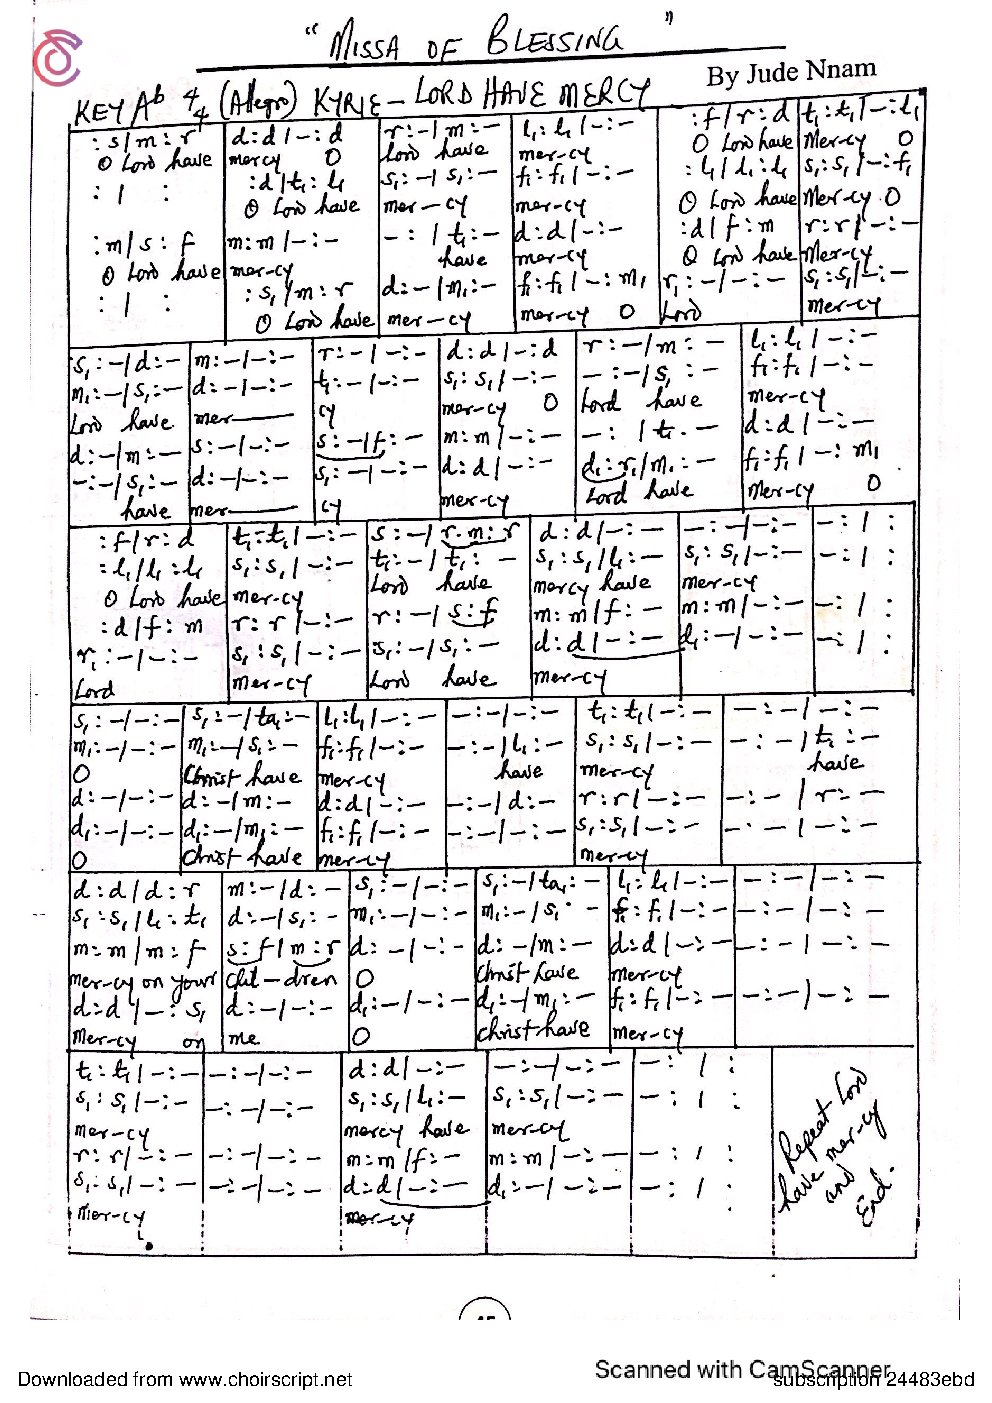 " MISSA OF BLESSING "
By Jude Nnam
KEY Ab 4/4 (Allegro) KYRIE – LORD HAVE MERCY
: s / m : r | d : d / – : d | r : – / m : – | l₁ : l₁ / – : – | : f / r : d | t₁ : t₁ / – : l₁
O Lord have | mercy O | Lord have | mer-cy | O Lord have | Mer-cy O
: / : | : d / t₁ : l₁ | s₁ : – / s₁ : – | f₁ : f₁ / – : – | : l₁ / l₁ : l₁ | s₁ : s₁ / – : f₁
O Lord have | mer – cy | mer-cy | O Lord have | Mer-cy O
: m / s : f | m : m / – : – | – : / t₁ : – | d : d / – : – | : d / f : m | r : r / – : –
O Lord have | mer-cy | have | mer-cy | O Lord have | Mer-cy
: / : | : s₁ / m : r | d : – / m₁ : – | f₁ : f₁ / – : m₁ | r₁ : – / – : – | s₁ : s₁ / – : –
O Lord have | mer – cy | mer-cy O | Lord | mer-cy
s₁ : – / d : – | m : – / – : – | r : – / – : – | d : d / – : d | r : – / m : – | l₁ : l₁ / – : –
m₁ : – / s₁ : – | d : – / – : – | t₁ : – / – : – | s₁ : s₁ / – : – | – : – / s₁ : – | f₁ : f₁ / – : –
Lord have | mer | cy | mer-cy O | Lord have | mer-cy
d : – / m : – | s : – / – : – | s : – / f : – | m : m / – : – | – : / t₁ . – | d : d / – : –
– : – / s₁ : – | d : – / – : – | s₁ : – / – : – | d : d / – : – | d₁ : r₁ / m₁ : – | f₁ : f₁ / – : m₁
have | mer | cy | mer-cy | Lord have | Mer-cy O
: f / r : d | t₁ : t₁ / – : – | s : – / r . m : r | d : d / – : – | – : – / – : – | – : / :
: l₁ / l₁ : l₁ | s₁ : s₁ / – : – | t₁ : – / t₁ : – | s₁ : s₁ / l₁ : – | s₁ : s₁ / – : – | – : / :
O Lord have | mer-cy | Lord have | mercy have | mer-cy
: d / f : m | r : r / – : – | r : – / s : f | m : m / f : – | m : m / – : – | – : / :
r₁ : – / – : – | s₁ : s₁ / – : – | s₁ : – / s₁ : – | d : d / – : – | d₁ : – / – : – | – : / :
Lord | mer-cy | Lord have | mer-cy
s₁ : – / – : – | s₁ : – / ta₁ : – | l₁ : l₁ / – : – | – : – / – : – | t₁ : t₁ / – : – | – : – / – : –
m₁ : – / – : – | m₁ : – / s₁ : – | f₁ : f₁ / – : – | – : – / l₁ : – | s₁ : s₁ / – : – | – : – / t₁ : –
O | Christ have | mer-cy | have | mer-cy | have
d : – / – : – | d : – / m : – | d : d / – : – | – : – / d : – | r : r / – : – | – : – / r : –
d₁ : – / – : – | d₁ : – / m₁ : – | f₁ : f₁ / – : – | – : – / – : – | s₁ : s₁ / – : – | – · – / – : –
O | Christ have | mer-cy | mer-cy
d : d / d : r | m : – / d : – | s₁ : – / – : – | s₁ : – / ta₁ : – | l₁ : l₁ / – : – | – : – / – : –
s₁ : s₁ / l₁ : t₁ | d : – / s₁ : – | m₁ : – / – : – | m₁ : – / s₁ · – | f₁ : f₁ / – : – | – : – / – : –
m : m / m : f | s : f / m : r | d : – / – : – | d : – / m : – | d : d / – : – | – : – / – : –
mer-cy on your | Chil – dren | O | Christ have | mer-cy
d : d / – : s₁ | d : – / – : – | d₁ : – / – : – | d₁ : – / m₁ : – | f₁ : f₁ / – : – | – : – / – : –
Mer-cy on | me | O | christ have | mer-cy
t₁ : t₁ / – : – | – : – / – : – | d : d / – : – | – : – / – : – | – : / :
s₁ : s₁ / – : – | – : – / – : – | s₁ : s₁ / l₁ : – | s₁ : s₁ / – : – | – : / :
mer-cy | mercy have | mer-cy
r : r / – : – | – : – / – : – | m : m / f : – | m : m / – : – | – : / :
s₁ : s₁ / – : – | – : – / – : – | d : d / – : – | d₁ : – / – : – | – : / :
mer-cy | mer-cy
Repeat Lord
have mer-cy
and
End.
Scanned with CamScanner
Downloaded from www.choirscript.net
subscription 24483ebd